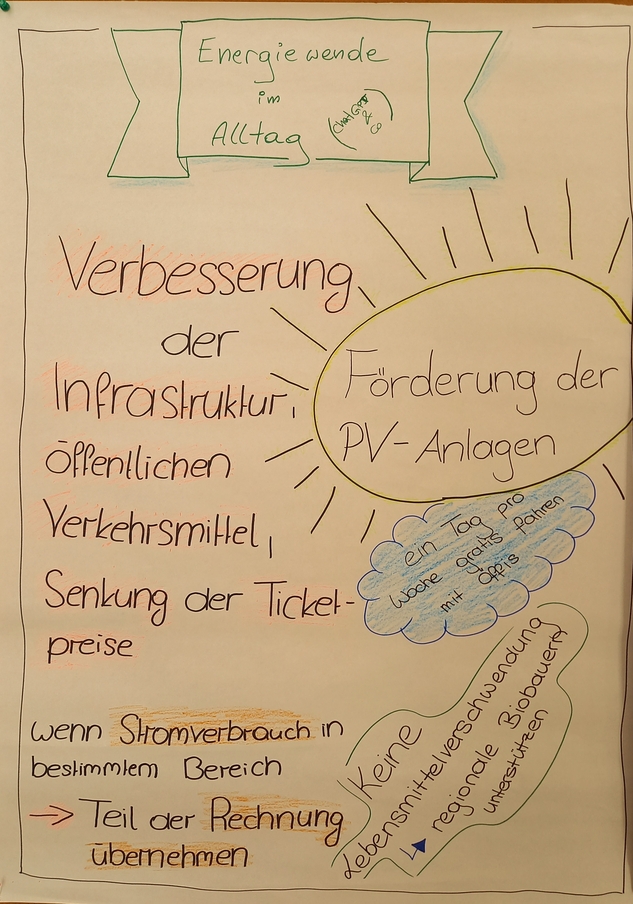 Energiewende
im
Alltag
(ChatGPT
& Co
Verbesserung
der
Infrastruktur,
öffentlichen
Verkehrsmittel,
Senkung der Ticket-
preise
Förderung der
PV-Anlagen
ein Tag pro
Woche gratis fahren
mit Öffis
wenn Stromverbrauch in
bestimmtem Bereich
→ Teil der Rechnung
übernehmen
Keine
Lebensmittelverschwendung
↳ regionale Biobauern
unterstützen